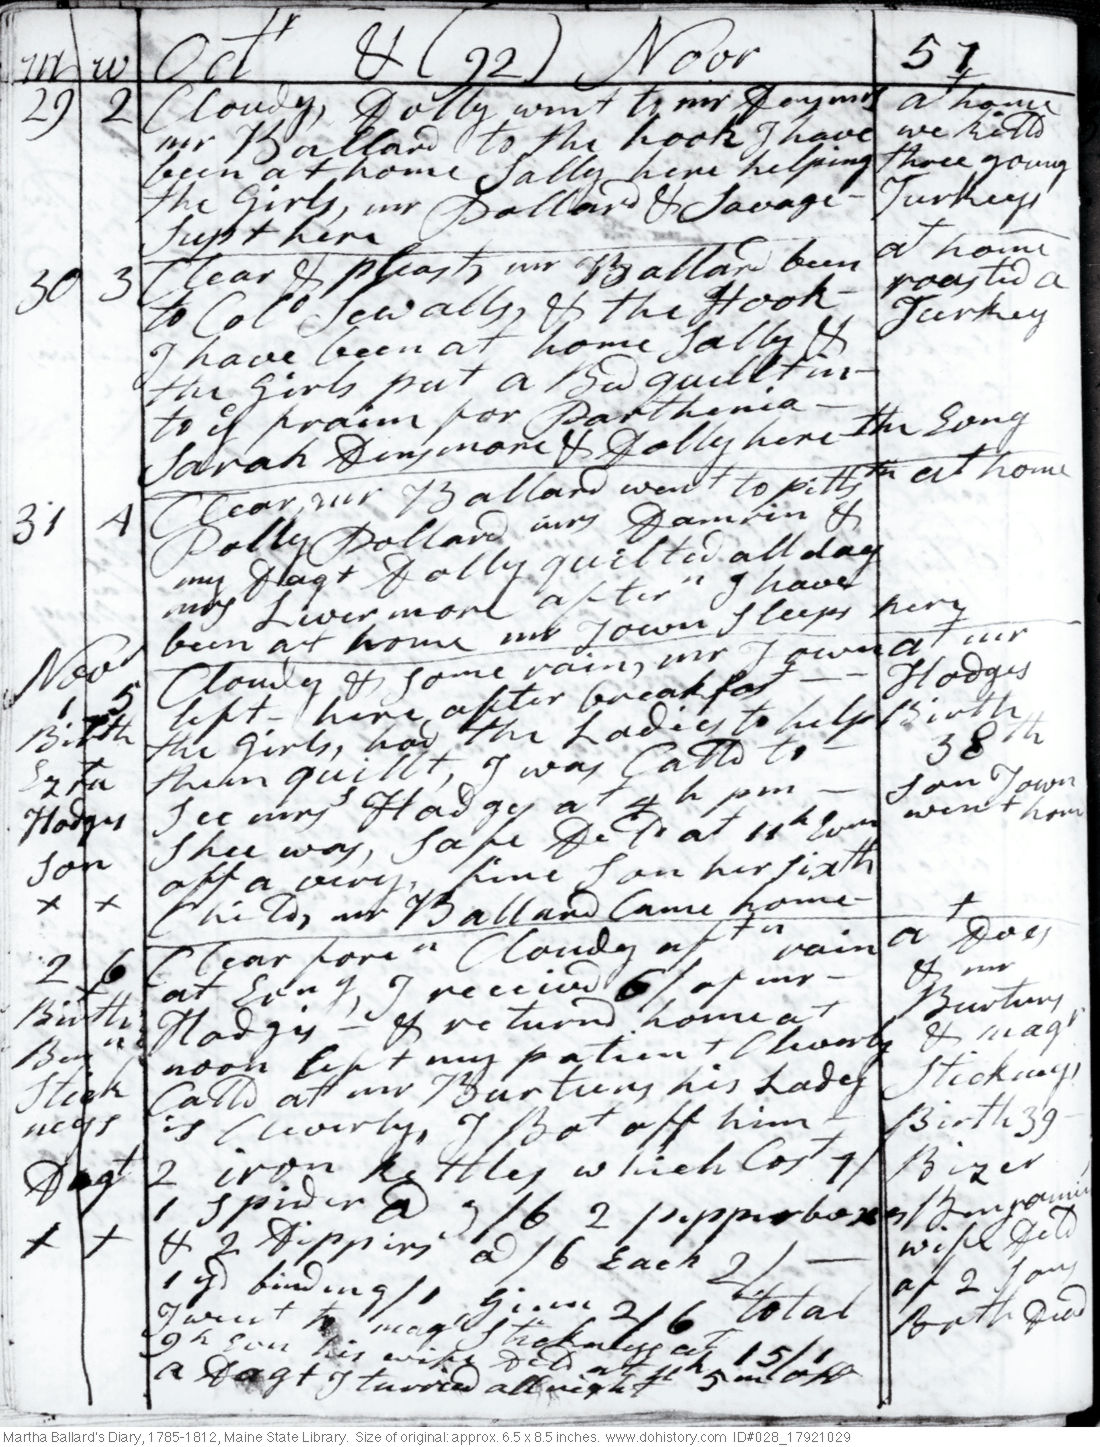 m w Octr & (92) Novr 57
29 2 Cloudy, Dolly went to mr Densmors at home
mr Ballard to the hook I have we killd
been at home Sally here helping three young
the Girls, mr Pollard & Savage Turkeys
Supt here
30 3 Clear & pleast, mr Ballard been at home
to Colo Sewalls, & the Hook roasted a
I have been at home Sally & Turkey
the Girls put a Bed quillt in
to ye fraim for Parthenia
Sarah Densmore & Dolly here the Evng
31 4 Clear, mr Ballard went to pittstn at home
Polly Pollard mrs Damrin &
my Dagt Dolly quilted all day
mrs Livermore aftern I have
been at home mr Town Sleeps here
Novr Cloudy & some rain, mr Town at mr
1 5 left here after breakfast Hodges
Birth the Girls, had the Ladies to help Birth
Ezra them quillt, I was Calld to 38th
Hodges See mrs Hodges at 4 h pm Son Town
Son Shee was, Safe Deld at 11h Evn went home
x x off a very, fine Son her sixth
Child, mr Ballard Came home
2 6 Clear forn Cloudy aftn rain at Does
Birth at Evng, I received 6/ of mr & mr
Benn Hodges & returnd home at Burtuns
Stick noon left my patient Cleverly & magr
neys Calld at mr Burtuns his Lady Stickneys
Dagt is Cleverly, I Bot off him Birth 39
x x 2 iron kettles which Cost 7/
1 Spider @ 3/6 2 pepperboxes Benjamin
& 2 Dippirs @ /6 Each 2/ wife Deld
1 yd binding /1 2/6 total of 2 Sons
I went to magr Stickneys at 15/1 Both Dead
9h Evn his wife Deld at 11h 5m off
a Dagt I tarried all night
Martha Ballard's Diary, 1785-1812, Maine State Library. Size of original: approx. 6.5 x 8.5 inches. www.dohistory.com ID#028_17921029